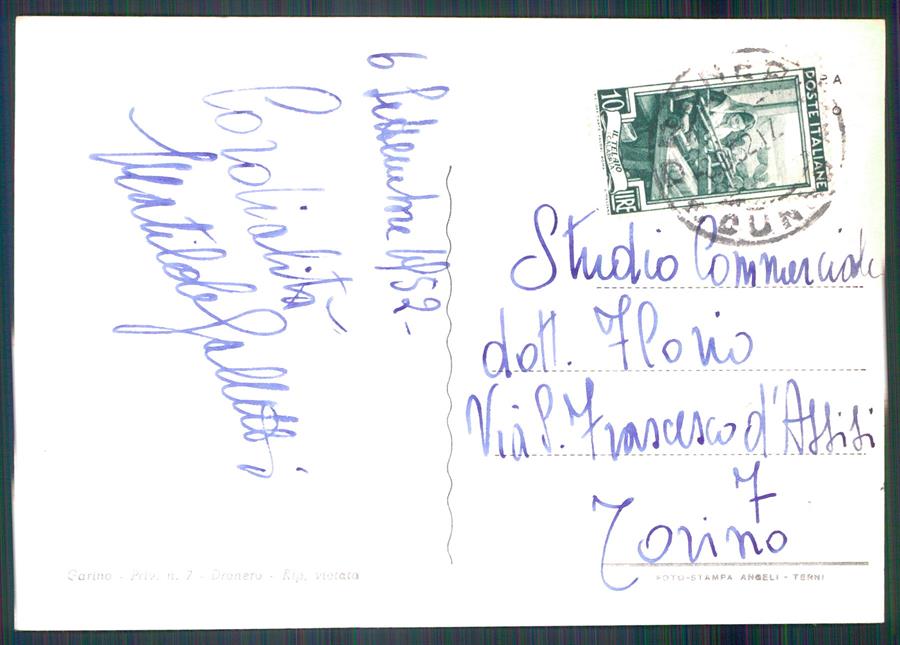 6 Settembre 1952-
Cordialità
Matilde Galletti
POSTE ITALIANE
10
LIRE
CUN
Studio Commerciale
dott. Florio
Via S. Francesco d'Assisi
7
Torino
Garino - Priv. n. 7 - Dronero - Rip. vietata
FOTO-STAMPA ANGELI - TERNI